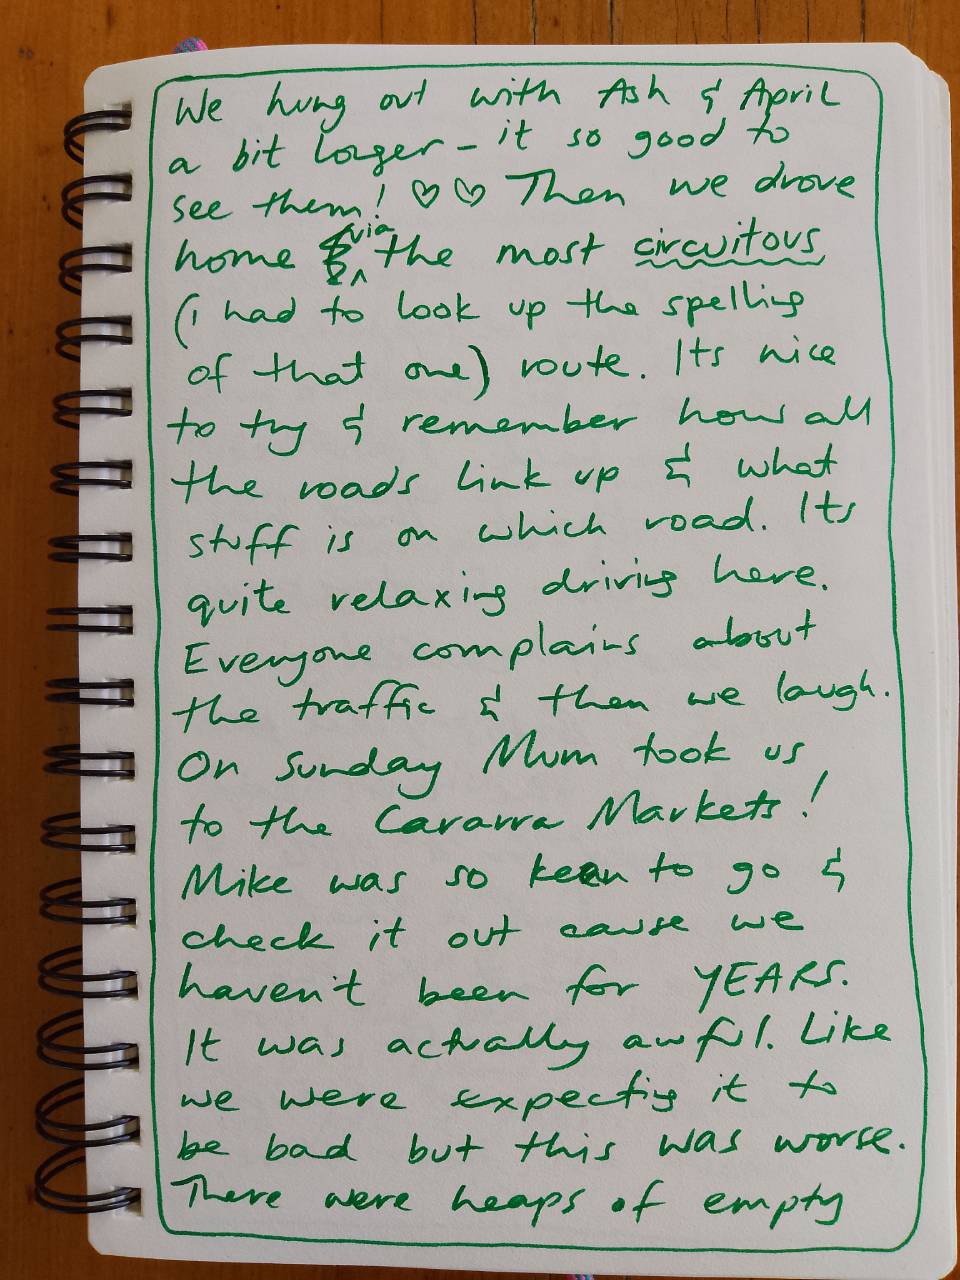 We hung out with Ash & April
a bit longer - it so good to
see them! ♡♡ Then we drove
home via the most circuitous
(i had to look up the spelling
of that one) route. Its nice
to try & remember how all
the roads link up & what
stuff is on which road. Its
quite relaxing driving here.
Everyone complains about
the traffic & then we laugh.
On Sunday Mum took us
to the Cararra Markets!
Mike was so keen to go &
check it out cause we
haven't been for YEARS.
It was actually awful. Like
we were expecting it to
be bad but this was worse.
There were heaps of empty